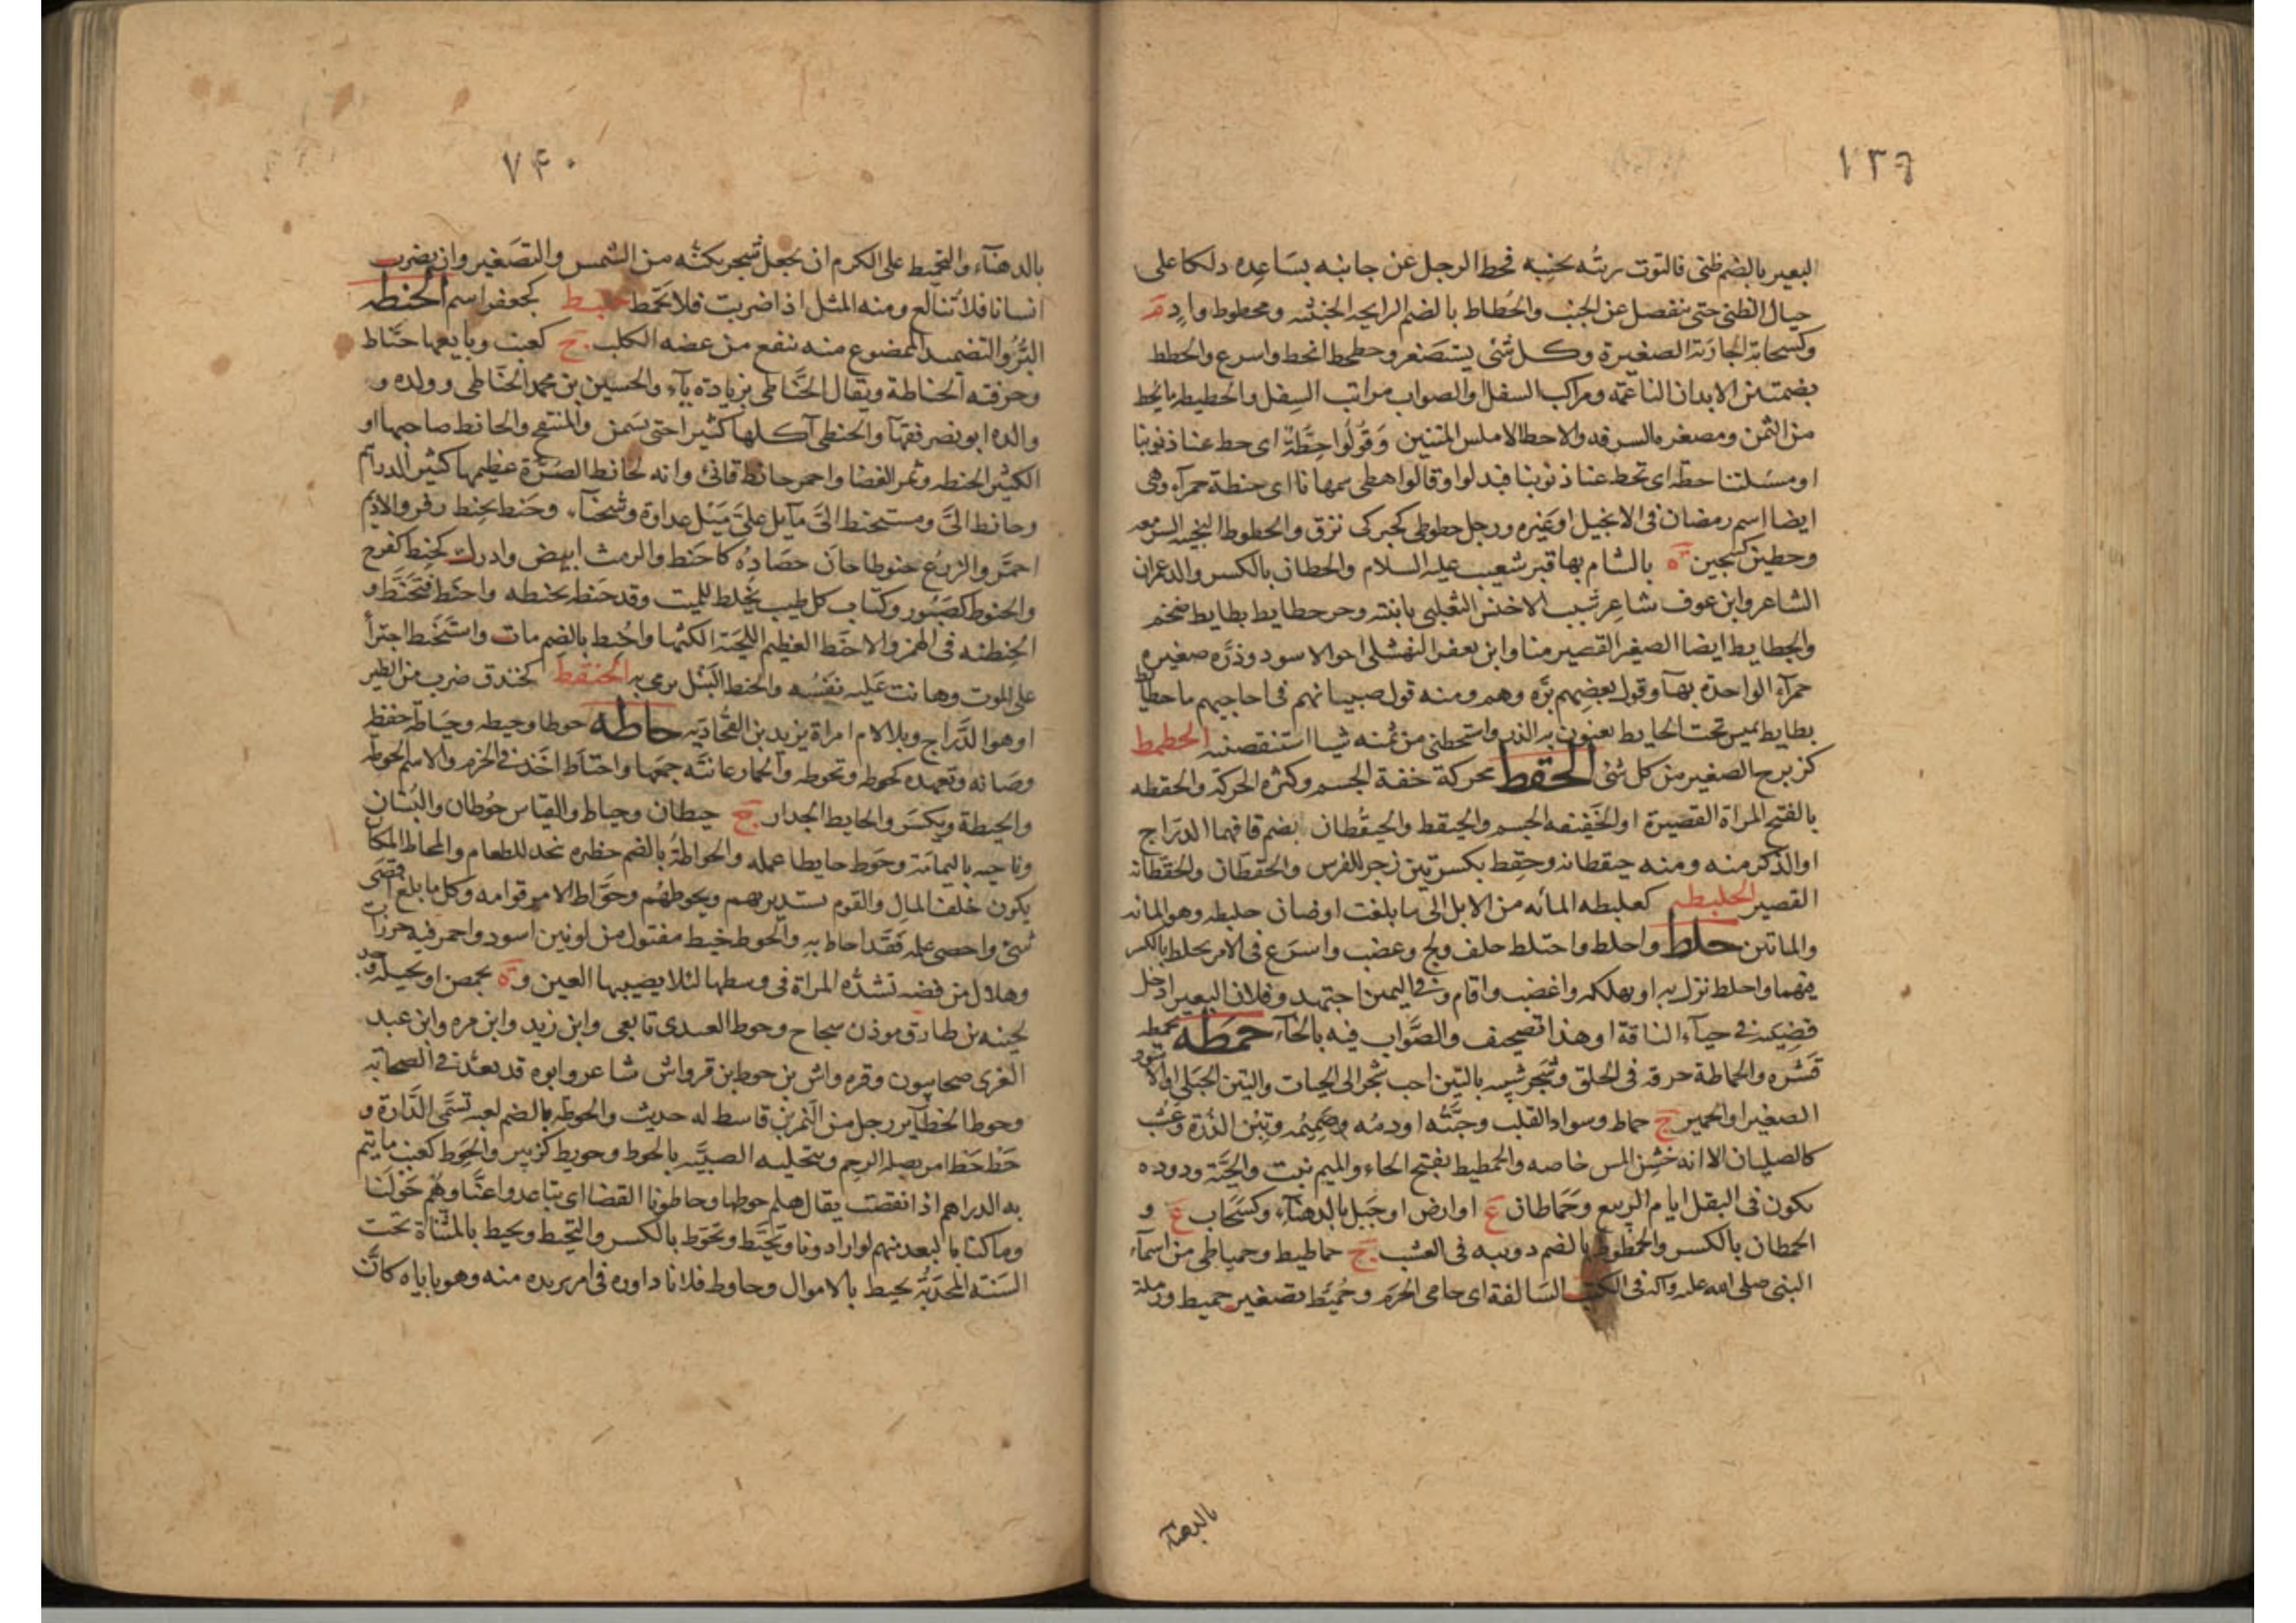 ٧٣٩
البعير بالضم ظنى فالتوت ريته بجنبه فحط الرجل عن جانبه بساعده دلكا على
حيال الظنى حتى ينفصل عن الجنب والحطاط بالضم الرايحه الخبيثه ومحطوط واد م
وكسحابة الجارية الصغيرة وكل شئ يستصغر وحطحط انحط واسرع والحطط
بضمتين الابدان الناعمه ومراكب السفل والصواب مراتب السفل والحطيطه ما يحط
من الثمن ومصغره السرفه والاحط الاملس المتنين وَقُولُوا حِطَّةٌ اى حط عنا ذنوبنا
او مسئلتنا حطه اى تحط عنا ذنوبنا فبدلوا وقالوا هطى سمهاثا اى حنطة حمرآء وهى
ايضا اسم رمضان فى الانجيل او غيره ورجل حطوطى كحبركى نزق والحطوط النجيبه السريعه
وحطين كسجين ة بالشام بها قبر شعيب عليه السلام والحطان بالكسر والد عمران
الشاعر وابن عوف شاعر شبب الاخنس التغلبى بابنته وحر حطايط بطايط ضخم
والحطايط ايضا الصغير القصير منا وابن يعفر النهشلى اخو الاسود وذرّه صغيره
حمرآء الواحدة بهآء وقول بعضهم بزه وهم ومنه قول صبيانهم فى احاجيهم ما حطايط
بطايط تميس تحت الحايط يعنون به الذر واستحطنى من ثمنه شيا استنقصنيه الحطمط
كزبرج الصغير من كل شئ الحقط محركة خفة الجسم وكثرة الحركة والحقطه
بالفتح المراة القصيرة او الخفيفه الجسم والحيقط والحيقُطان بضم قافهما الدرّاج
او الذكر منه ومنه حيقطانه وحِقِط بكسرتين زجر للفرس والحقطان والحقطانه
القصير الحلبطه كعلبطه المائه من الابل الى ما بلغت او ضان حلبطه وهو المائه
والمائتين حلط واحلط واحتلط حلف ولج وغضب واسرع فى الامر حلط بالكسر
فيهما واحلط نزل به او بهلكه واغضب واقام وفى اليمين اجتهد وفلان البعير ادخل
قضيبه فى حيآء الناقة او هذا تصحيف والصَّواب فيه بالخآء حمطه يحمطه
قَشَره والحماطة حرقه فى الحلق وشجر شبيه بالتين احب شجر الى الحيات والتين الجبلى او الاسود
الصغير او الجميز ج حماط وسواد القلب وحبَّتُه او دمُه وصميمُه وتبن الذُرَة وعشب
كالصليان الا انه خشن المس خاصه والحمطيط بفتح الحاء والميم نبت والحيَّة ودوده
تكون فى البقل ايام الربيع وحَمَاطان ع او ارض او جبل بالدهنآء وكسَحَاب ع و
الحمطان بالكسر والحمطوط بالضم دويبه فى العشب ج حماطيط وحمياطى من اسمآء
النبى صلى الله عليه وآله فى الكتب السالفة اى حامى الحرَم وحُمَيط تصغير حميط ورملة
بالدهنآء
٧٤٠
بالدهنآء والتحميط على الكرم ان يجعل شجر يكنُّه من الشمس والتصغير وان يضرب
انسانا فلا تبالغ ومنه المثل اذا ضربت فلا تحمّط حنبط كجعفر اسم الحنطه
البُرّ والتضميد الممضوغ منه ينفع من عضه الكلب ج كعنب وبايعها حنّاط
وحرفته الحناطة ويقال الحنّاطى بزيادة يآء والحسين بن محمد الحنّاطى وولده و
والده ابو نصر فقهآ والحنطى آكلها كثيرا حتى يسمن والمنتفخ والحانط صاحبها او
الكثير الحنطه وثمر الغضا واحمر حانط قانئ وانه لحانط الصُرّة عظيمها كثير الدراهم
وحانط الىّ ومستحنط الىّ مآيل علىّ مَيْل عداوة وشحنآء وحنط يحنط زفر والاديم
احمرّ والزرع حنوطا حان حصاده كاحنط والرمث ابيض وادرك كحنط كفرح
والحنوط كصبور وكتاب كل طيب يخلط للميت وقد حنطه يحنطه واحنط فتحنّط و
الحِنطئه فى الهمز والاحنط العظيم اللحيه الكثها واحنط بالضم مات واستحنط اجترأ
على الموت وهانت عليه نفسُه والحنط النبل يرمى به الحنقط كخندق ضرب من الطير
او هو الدَّراج وبلا لام امراة يزيد بن القحاديه حاطه حوطا وحيطه وحياطة حفظه
وصانه وتعهده كحوطه وتحوطه والحمار عانتَّه جمعها واحتاط اخذ فى الحزم والاسم الحوطه
والحيطة ويكسَر والحايط الجدار ج حيطان وحياط والقياس حُوطان والبُستان
وناحيه باليمامة وحوّط حايطا عمله والحواطةُ بالضم حظيره تتخذ للطعام والمحاط المكان
يكون خلف المال والقوم يستدير بهم ويحوطهُم وحوَّاط الامر قوامه وكل ما بلغ اقصَى
شئ واحصى علمه فقد احاط بهِ والحوط خيط مفتول من لونين اسود واحمر فيه خرزات
وهلال من فضه تشدّه المراة فى وسطها لئلا يصيبها العين وة بحمص او بجبله وجد
لجينه بن طارق موذن سجاح وحوط العبدى تابعى وابن زيد وابن مره وابن عبد
العزى صحابيون وقره واش بن حوط بن قرواش شاعر وابوه قد يعدُّ فى الصحابة
وحوط الحظآير رجل من النمر بن قاسط له حديث والحوطه بالضم لعبه تسمَّى الدَّارة و
حُطْ حُطْ امر بصله الرحم وبتحليه الصبيَّه بالحوط وحويط كزبير والحِوَط كعنب ما يتم
به الدراهم اذا نقصت يقال هلم حوطها وحاطونا القصا اى تباعدوا عنَّا وهُم حَولَنا
وماكنا بالبعد منهم لو ارادونا وتحَيَّط وتحوّط بالكسر والتحيط ويحيط بالمثناة تحت
السنه المجدبةُ تحيط بالاموال وحاوط فلانا داوره فى امر يريده منه وهو ياباه كانَّ